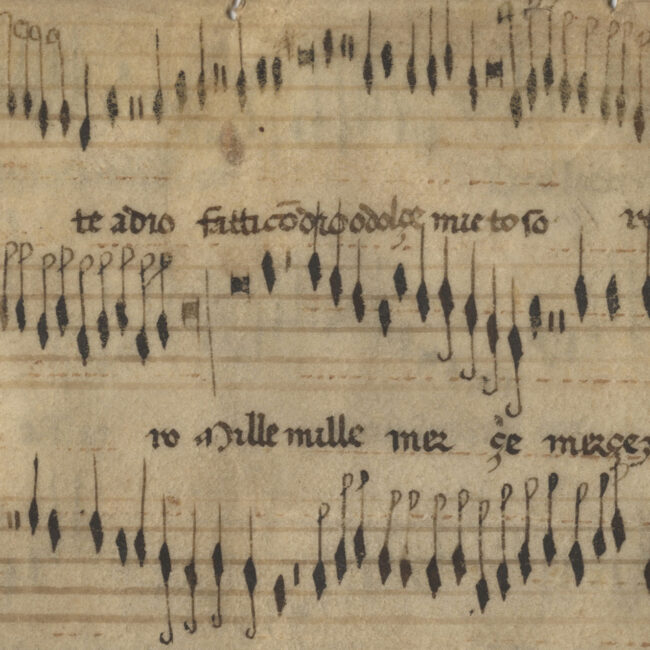 te adio fatti cõ dio o dolçe mie toso
ro Mille mille mer çe merçe